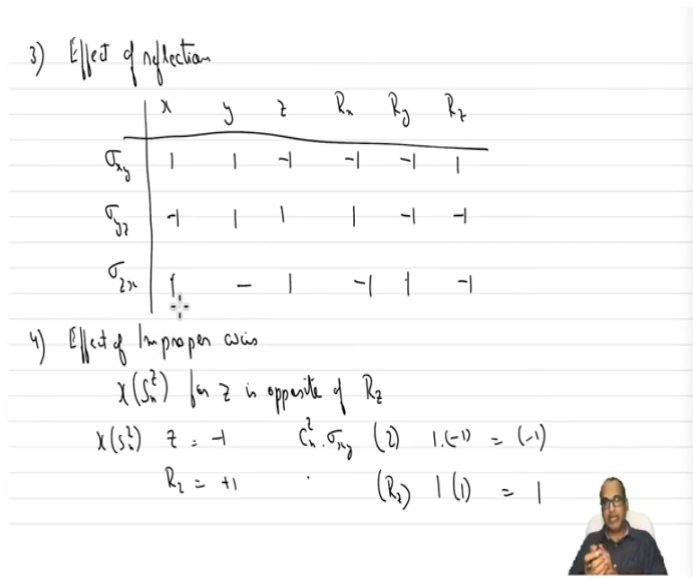 3) Effect of reflection
x y z Rx Ry Rz
σxy 1 1 -1 -1 -1 1
σyz -1 1 1 1 -1 -1
σzx 1 - 1 -1 1 -1
4) Effect of Improper axis
χ(Sn^z) for z is opposite of Rz
χ(Sn^z) z = -1 Cn^z . σxy (z) 1.(-1) = (-1)
Rz = +1 . (Rz) 1(1) = 1